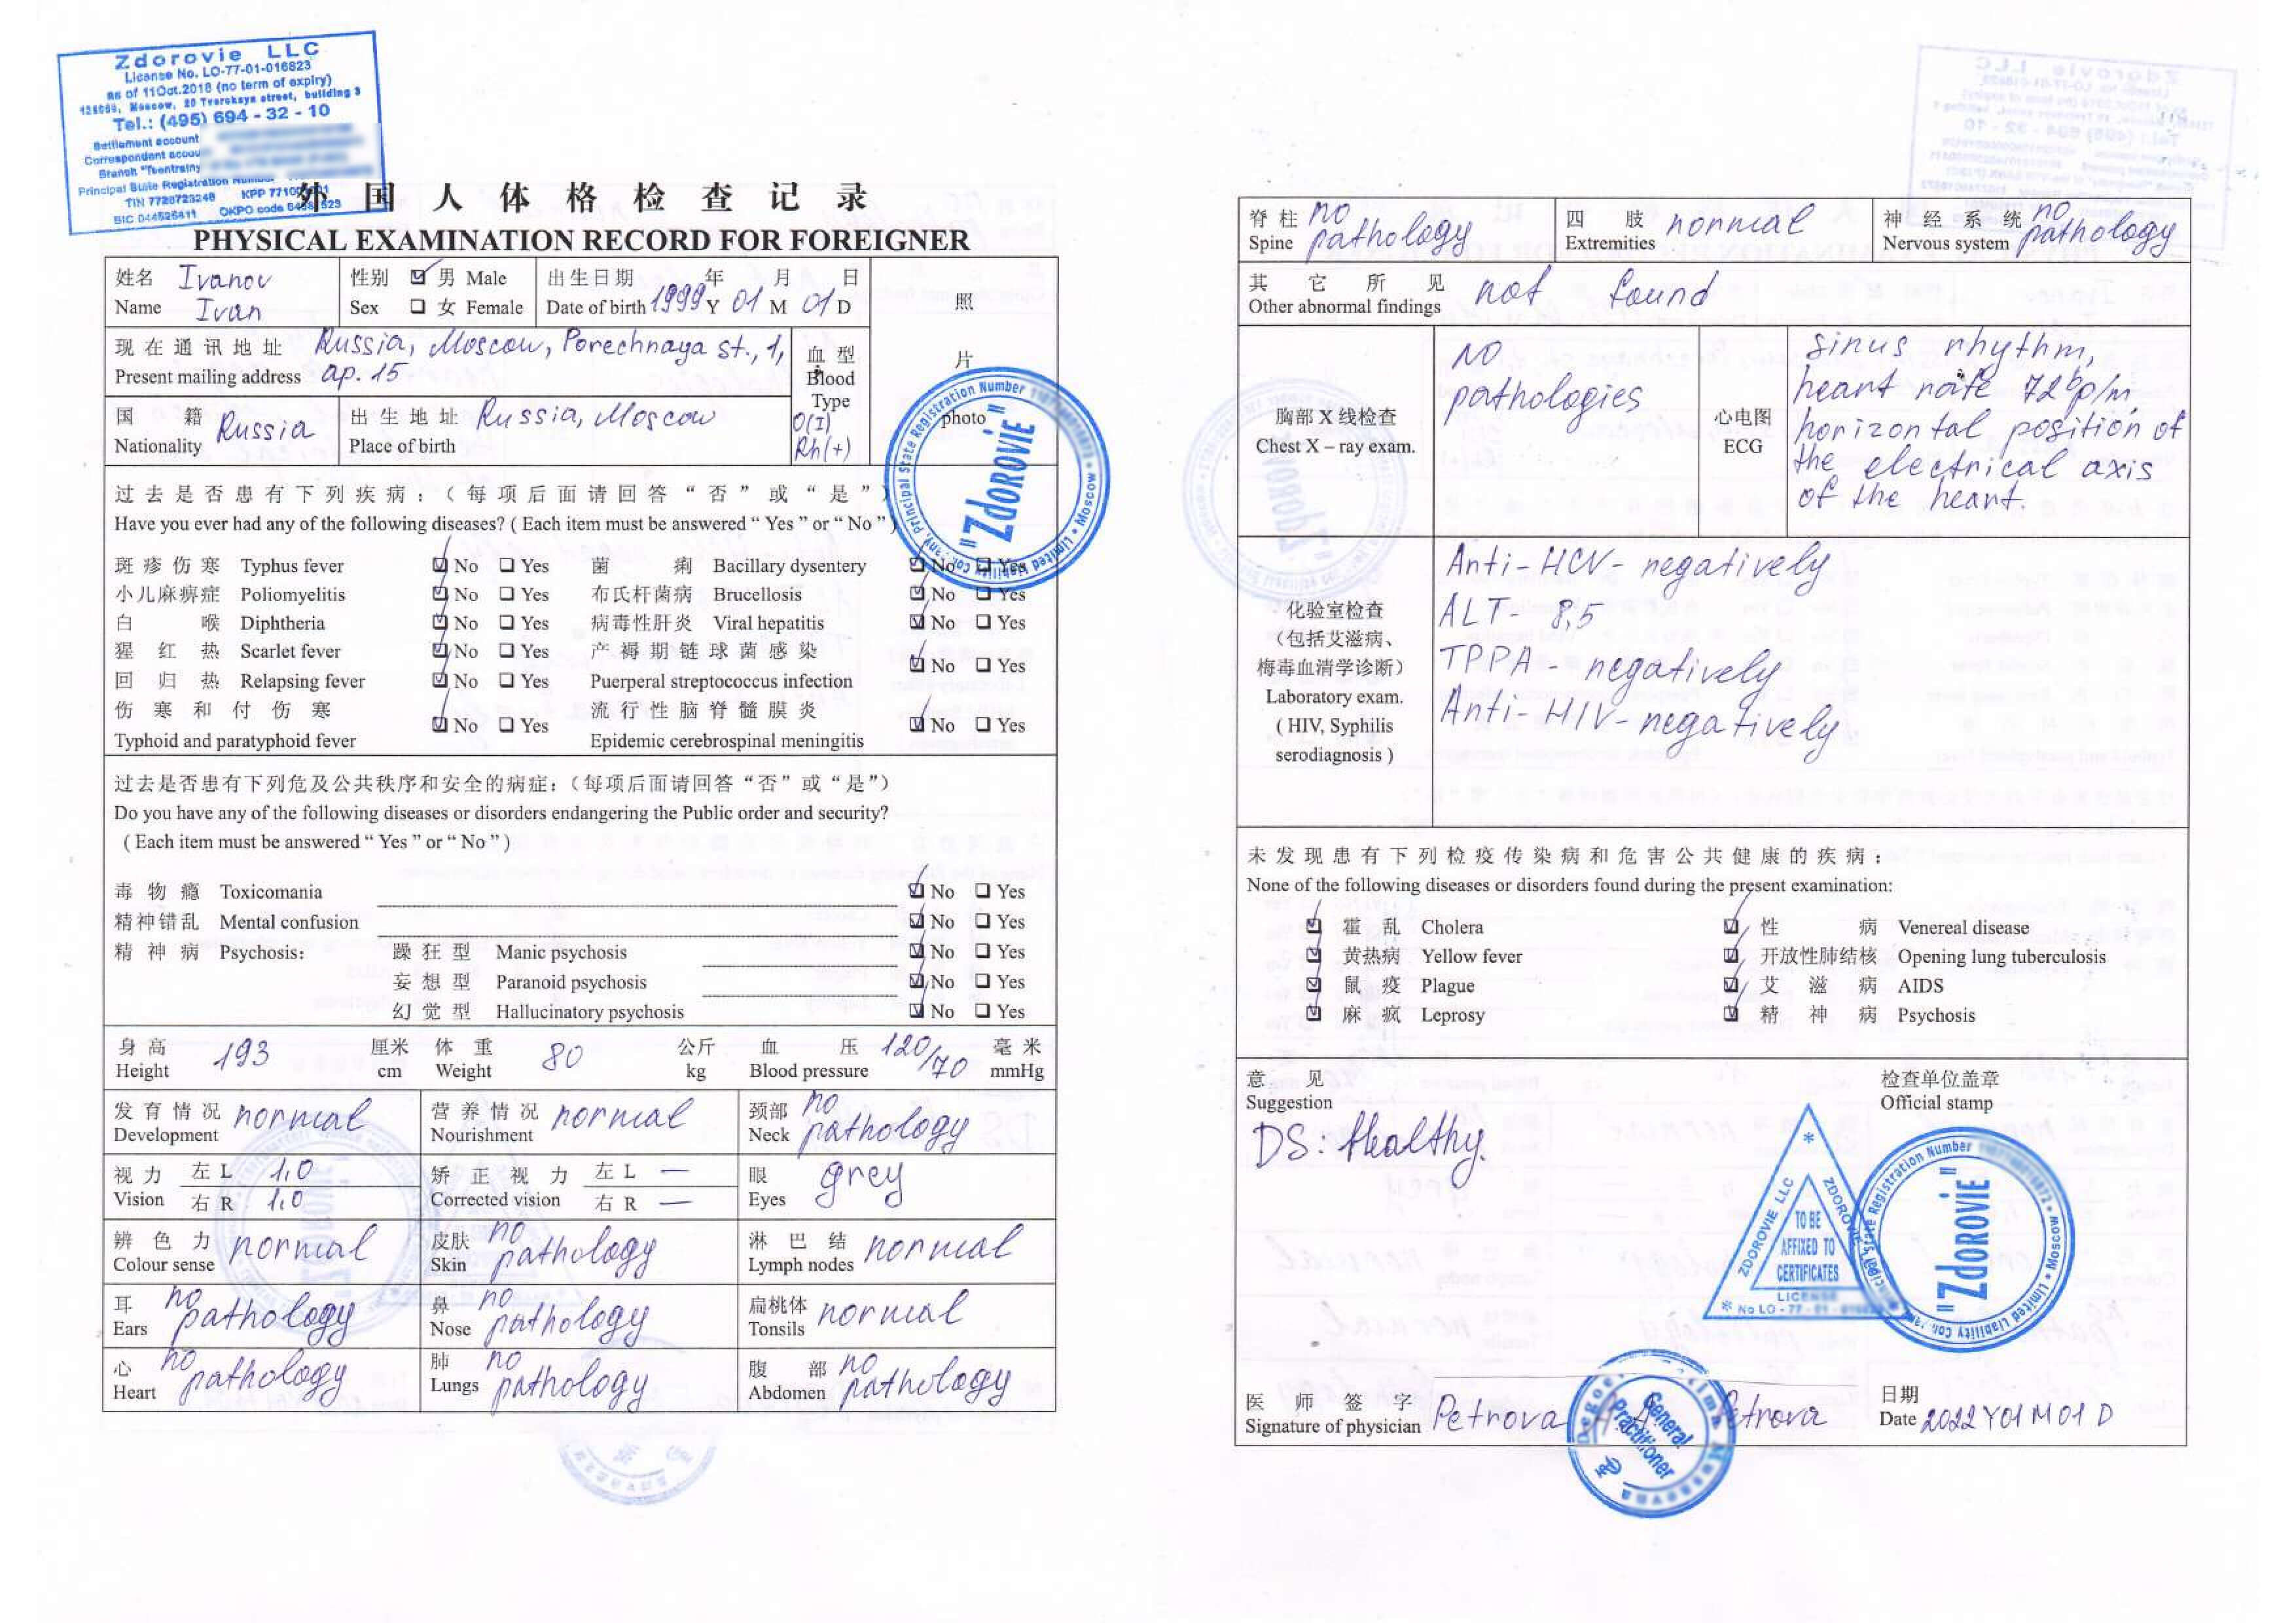 Zdorovie LLC
License No. LO-77-01-016823
as of 11Oct.2018 (no term of expiry)
Moscow, 20 Tverskaya street, building 3
Tel.: (495) 694 - 32 - 10
Settlement account
Correspondent
Branch
Principal State Registration
TIN 7728723248 KPP
BIC 044525411 OKPO code
外 国 人 体 格 检 查 记 录
PHYSICAL EXAMINATION RECORD FOR FOREIGNER
姓名 Name Ivanov Ivan
性别 Sex ☑ 男 Male ☐ 女 Female
出生日期 年 月 日
Date of birth 1999 Y 01 M 01 D
照 片 photo
现在通讯地址 Russia, Moscow, Porechnaya st., 1,
Present mailing address ap. 15
血型 Blood Type O(I) Rh(+)
国 籍 Nationality Russia
出生地址 Russia, Moscow
Place of birth
过去是否患有下列疾病：（每项后面请回答“否”或“是”）
Have you ever had any of the following diseases? ( Each item must be answered “ Yes ” or “ No ” )
斑疹伤寒 Typhus fever ☑ No ☐ Yes 菌 痢 Bacillary dysentery ☑ No ☐ Yes
小儿麻痹症 Poliomyelitis ☑ No ☐ Yes 布氏杆菌病 Brucellosis ☑ No ☐ Yes
白 喉 Diphtheria ☑ No ☐ Yes 病毒性肝炎 Viral hepatitis ☑ No ☐ Yes
猩 红 热 Scarlet fever ☑ No ☐ Yes 产褥期链球菌感染
回 归 热 Relapsing fever ☑ No ☐ Yes Puerperal streptococcus infection ☑ No ☐ Yes
伤寒和付伤寒 流行性脑脊髓膜炎
Typhoid and paratyphoid fever ☑ No ☐ Yes Epidemic cerebrospinal meningitis ☑ No ☐ Yes
过去是否患有下列危及公共秩序和安全的病症：（每项后面请回答“否”或“是”）
Do you have any of the following diseases or disorders endangering the Public order and security?
( Each item must be answered “ Yes ” or “ No ” )
毒 物 瘾 Toxicomania ☑ No ☐ Yes
精神错乱 Mental confusion ☑ No ☐ Yes
精 神 病 Psychosis: 躁狂型 Manic psychosis ☑ No ☐ Yes
妄想型 Paranoid psychosis ☑ No ☐ Yes
幻觉型 Hallucinatory psychosis ☑ No ☐ Yes
身高 Height 193 厘米 cm 体重 Weight 80 公斤 kg 血压 Blood pressure 120/70 毫米 mmHg
发育情况 Development normal 营养情况 Nourishment normal 颈部 Neck no pathology
视力 Vision 左 L 1,0 右 R 1,0 矫正视力 Corrected vision 左 L — 右 R — 眼 Eyes grey
辨色力 Colour sense normal 皮肤 Skin no pathology 淋巴结 Lymph nodes normal
耳 Ears no pathology 鼻 Nose no pathology 扁桃体 Tonsils normal
心 Heart no pathology 肺 Lungs no pathology 腹部 Abdomen no pathology
Principal State Registration Number
"Zdorovie"
Limited Liability Company
Moscow
脊柱 Spine no pathology 四肢 Extremities normal 神经系统 Nervous system no pathology
其 它 所 见 Other abnormal findings not found
胸部 X 线检查 Chest X – ray exam. NO pathologies
心电图 ECG
sinus rhythm,
heart rate 72 bp/m,
horizontal position of
the electrical axis
of the heart.
化验室检查
（包括艾滋病、
梅毒血清学诊断）
Laboratory exam.
( HIV, Syphilis
serodiagnosis )
Anti-HCV- negatively
ALT- 8,5
TPPA - negatively
Anti-HIV- negatively
未发现患有下列检疫传染病和危害公共健康的疾病：
None of the following diseases or disorders found during the present examination:
☑ 霍 乱 Cholera ☑ 性 病 Venereal disease
☑ 黄热病 Yellow fever ☑ 开放性肺结核 Opening lung tuberculosis
☑ 鼠 疫 Plague ☑ 艾 滋 病 AIDS
☑ 麻 疯 Leprosy ☑ 精 神 病 Psychosis
意 见
Suggestion
DS: Healthy.
检查单位盖章
Official stamp
ZDOROVIE LLC
ZDOROVIE
TO BE
AFFIXED TO
CERTIFICATES
Principal State Registration Number
"Zdorovie"
Limited Liability Company
Moscow
医 师 签 字
Signature of physician Petrova Petrova
General
Practitioner
日期
Date 2022 Y 01 M 01 D